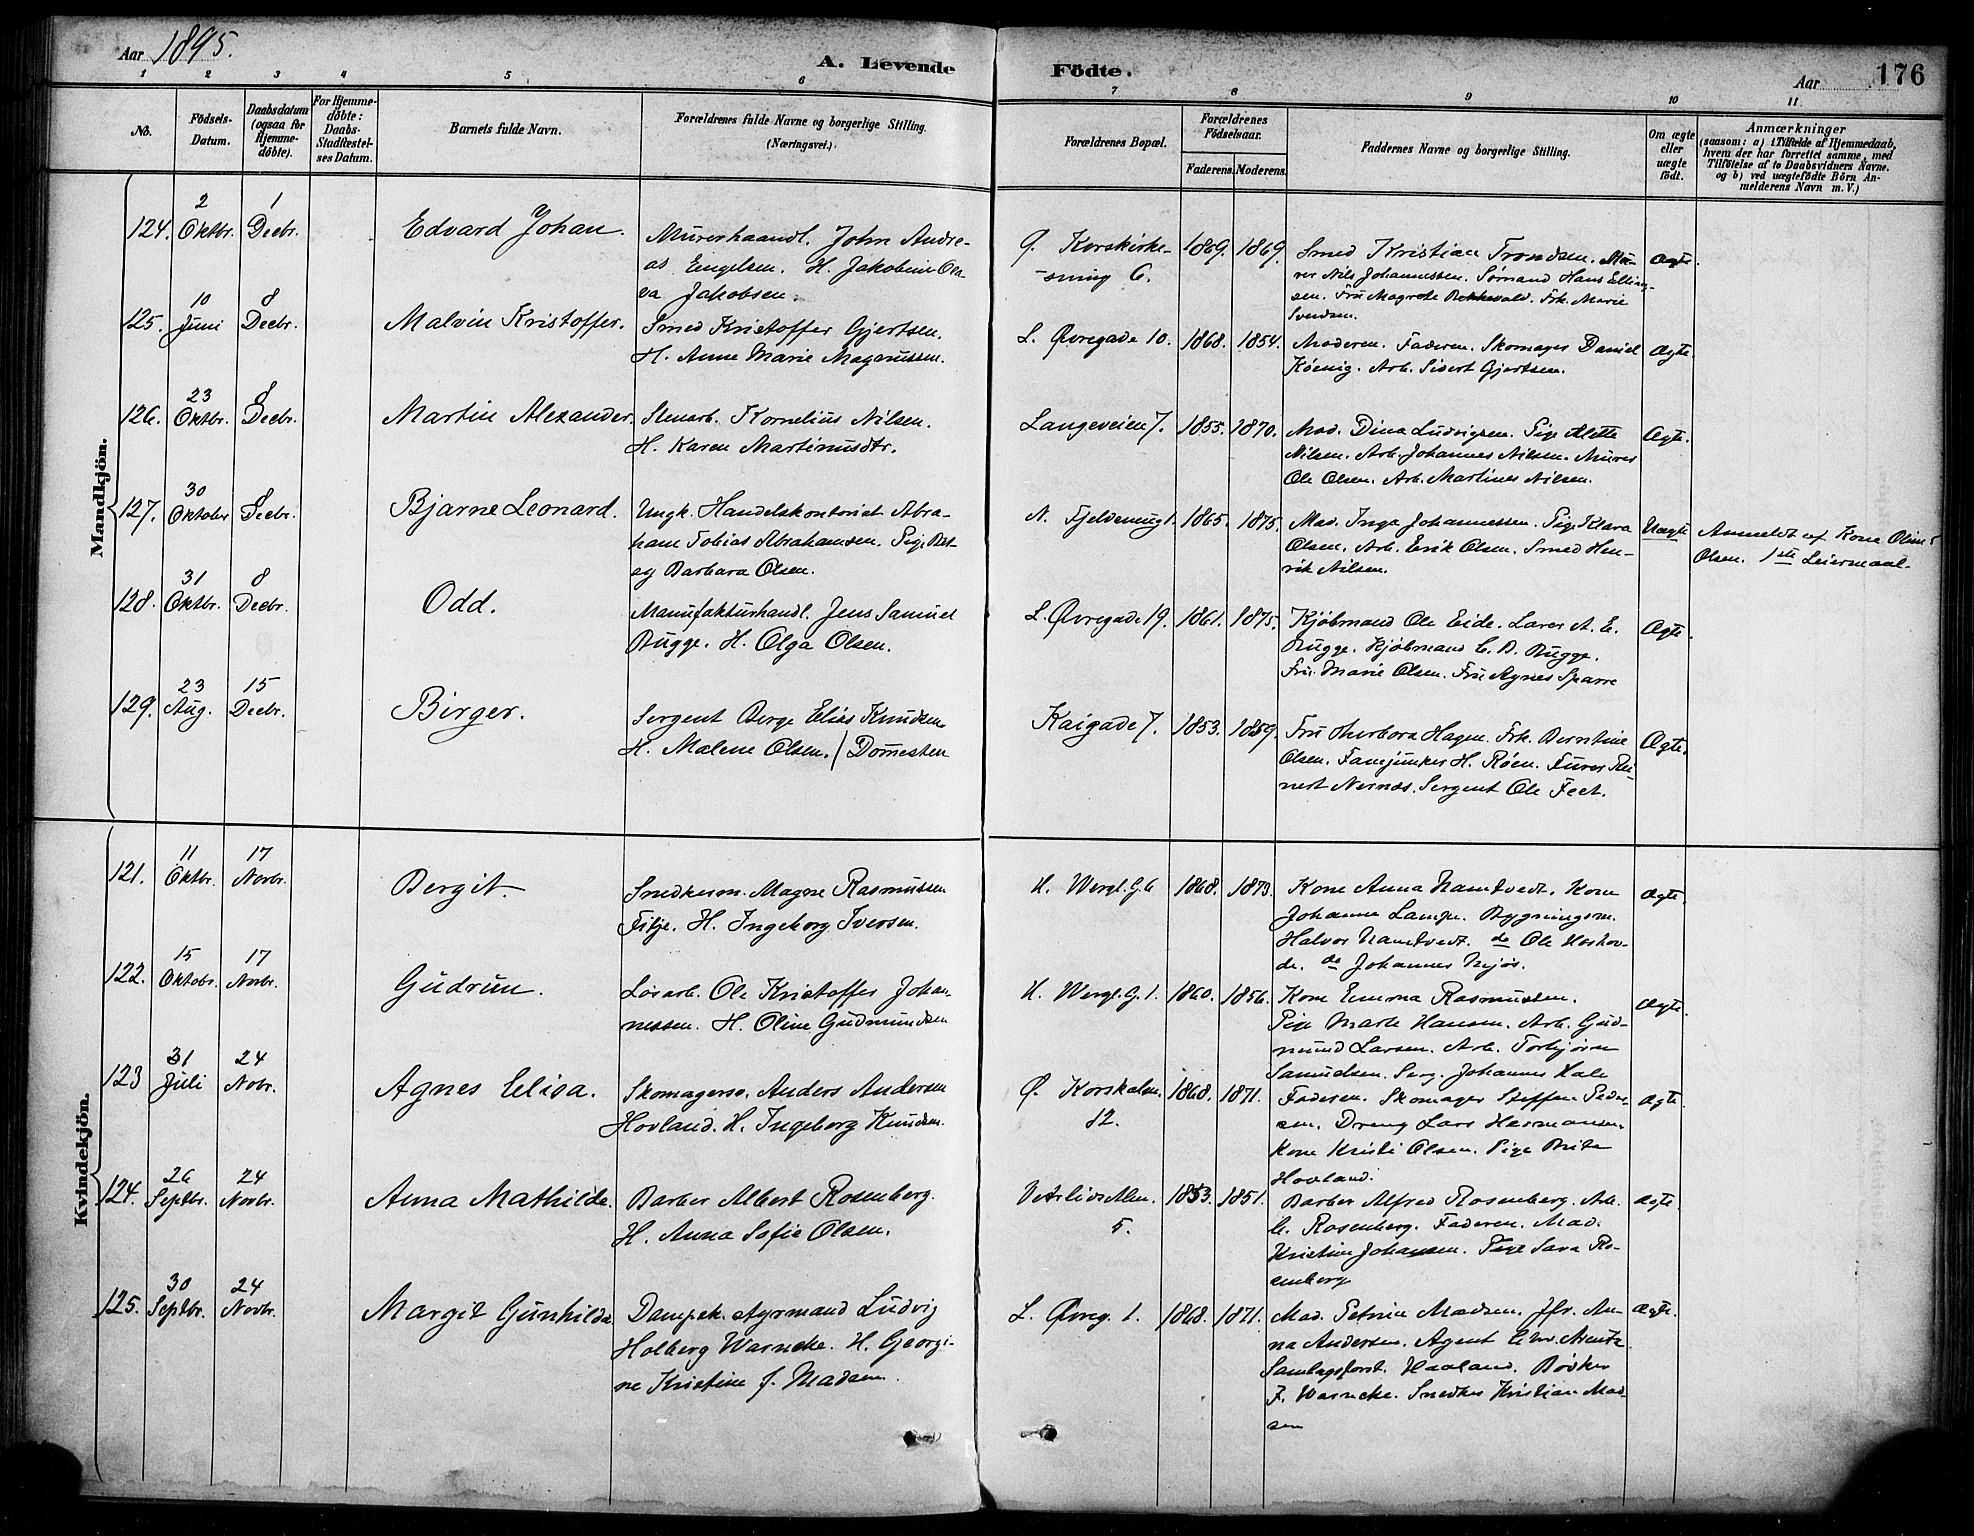 Aar 1895.
A. Levende Födte.
Aar 176
1 2 3 4 5 6 7 8 9 10 11
No.
Födsels-
Datum.
Daabsdatum
(ogsaa for
Hjemme-
döbte).
For Hjemme-
döbte:
Daabs-
Stadfæstel-
ses Datum.
Barnets fulde Navn.
Forældrenes fulde Navne og borgerlige Stilling.
(Næringsvei.)
Forældrenes Bopæl.
Forældrenes
Födselsaar.
Faderens. Moderens.
Faddernes Navne og borgerlige Stilling.
Om ægte
eller
uægte
födt.
Anmærkninger
(saasom: a) i Tilfælde af Hjemmedaab,
hvem der har forrettet samme, med
Tilföielse af to Daabsvidners Navne.
og b) ved uægtefödte Börn An-
melderens Navn m. V.)
Mandkjön.
124. 2 Oktbr. 1 Decbr. Edvard Johan.
Murerhaandl. John Andre-
as Engelsen. H. Jakobine Ol-
va Jakobsen.
Ø. Korskirke-
smug 6.
1869. 1869.
Smed Kristian Trondsen. Mu-
rer Nils Johannessen. Sömand Hans Elling-
sen. Fru Magrete Rekkevold. Frk. Marie
Svendsen.
Ægte.
125. 10 Juni 8 Decbr. Malvin Kristoffer.
Smed Kristoffer Gjertsen.
H. Anne Marie Magnussen.
L. Øvregade 10. 1868. 1854.
Moderen. Faderen. Skomager Daniel
Köenig. Arb. Sivert Gjertsen.
Ægte.
126. 23 Oktbr. 8 Decbr. Martin Alexander.
Stenarb. Kornelius Nilsen.
H. Karen Martinusdtr.
Langeveien 7. 1855. 1870.
Mad. Dina Ludvigsen. Pige Mette
Nilsen. Arb. Johannes Nilsen. Murer
Ole Olsen. Arb. Martines Nilsen.
Ægte.
127. 30 Oktober 8 Decbr. Bjarne Leonard.
Ungk. Handelskontorist Abra-
ham Tobias Abrahamsen. Pige Bet-
sy Barbara Olsen.
N. Fjeldsmug 1. 1865. 1875.
Mad. Inga Johannessen. Pige Klara
Olsen. Arb. Erik Olsen. Smed Hen-
rik Nilsen.
Uægte
Anmeldt af Kone Oline
Olsen. 1ste Leiermaal.
128. 31 Oktbr. 8 Decbr. Odd.
Manufakturhandl. Jens Samuel
Bugge. H. Olga Olsen.
L. Øvregade 19. 1861. 1875.
Kjöbmand Ole Eide. Lærer A. E.
Bugge. Kjöbmand C. D. Bugge.
Fru Marie Olsen. Fru Agnes Sparre
Ægte.
129. 23 Aug. 15 Decbr. Birger.
Sergent Berge Elias Knudsen
H. Malene Olsen. / Domesten
Kaigade 7. 1853. 1859.
Fru Therbora Hagen. Frk. Berntine
Olsen. Fanejunker H. Röen. Furer Rei-
nert Nernæs. Sergent Ole Feet.
Ægte.
Kvindekjön.
121. 11 Oktbr. 17 Novbr. Bergit.
Snedkerm. Magne Rasmussen
Filje. H. Ingeborg Iversen.
H. Wergl. G. 6 1868. 1873.
Kone Anna Namtvedt. Kone
Johanne Lampe. Bygningsm.
Halvor Namtvedt. do Ole Horhov-
de. do Johannes Njös.
Ægte.
122. 15 Oktobr. 17 Novbr. Gudrun.
Lösarb. Ole Kristoffer Johan-
nessen. H. Oline Gudmundsen
H. Wergl. G. 1. 1860. 1856.
Kone Emma Rasmussen.
Pige Marte Hansen. Arb. Gud-
mund Larsen. Arb. Torbjörn
Samuelsen. Serg. Johannes Hole
Ægte.
123 31 Juli 24 Nobr. Agnes Elisa.
Skomagersv. Anders Andersen
Hovland. H. Ingeborg Knudsen.
Ø. Korskalm. 12. 1868. 1871.
Faderen. Skomager Steffen Peder-
sen. Dreng Lars Hermansen.
Kone Kristi Olsen. Pige Brita
Hovland.
Ægte
124. 26 Septbr. 24 Novbr. Anna Mathilde.
Barber Albert Rosenberg.
H. Anna Sofie Olsen.
Vetrlidsalm. 5. 1853. 1851.
Barber Alfred Rosenberg. Arb.
C. Rosenberg. Faderen. Mad.
Kristine Johansen. Pige Sara Ro-
senberg
Ægte.
125. 30 Septbr. 24 Novbr. Margit Gunhilda
Dampsk. styrmand Ludvig
Holberg Warncke. H. Georgi-
ne Kristine f. Madsen.
L. Øvreg. 1. 1868. 1871.
Mad. Petrine Madsen. Jfr. An-
na Andersen. Agent Chr. Arentz.
Samlagsforst. Haaland. Bödker
F. Warncke. Snedker Kristian Mad-
sen
Ægte.